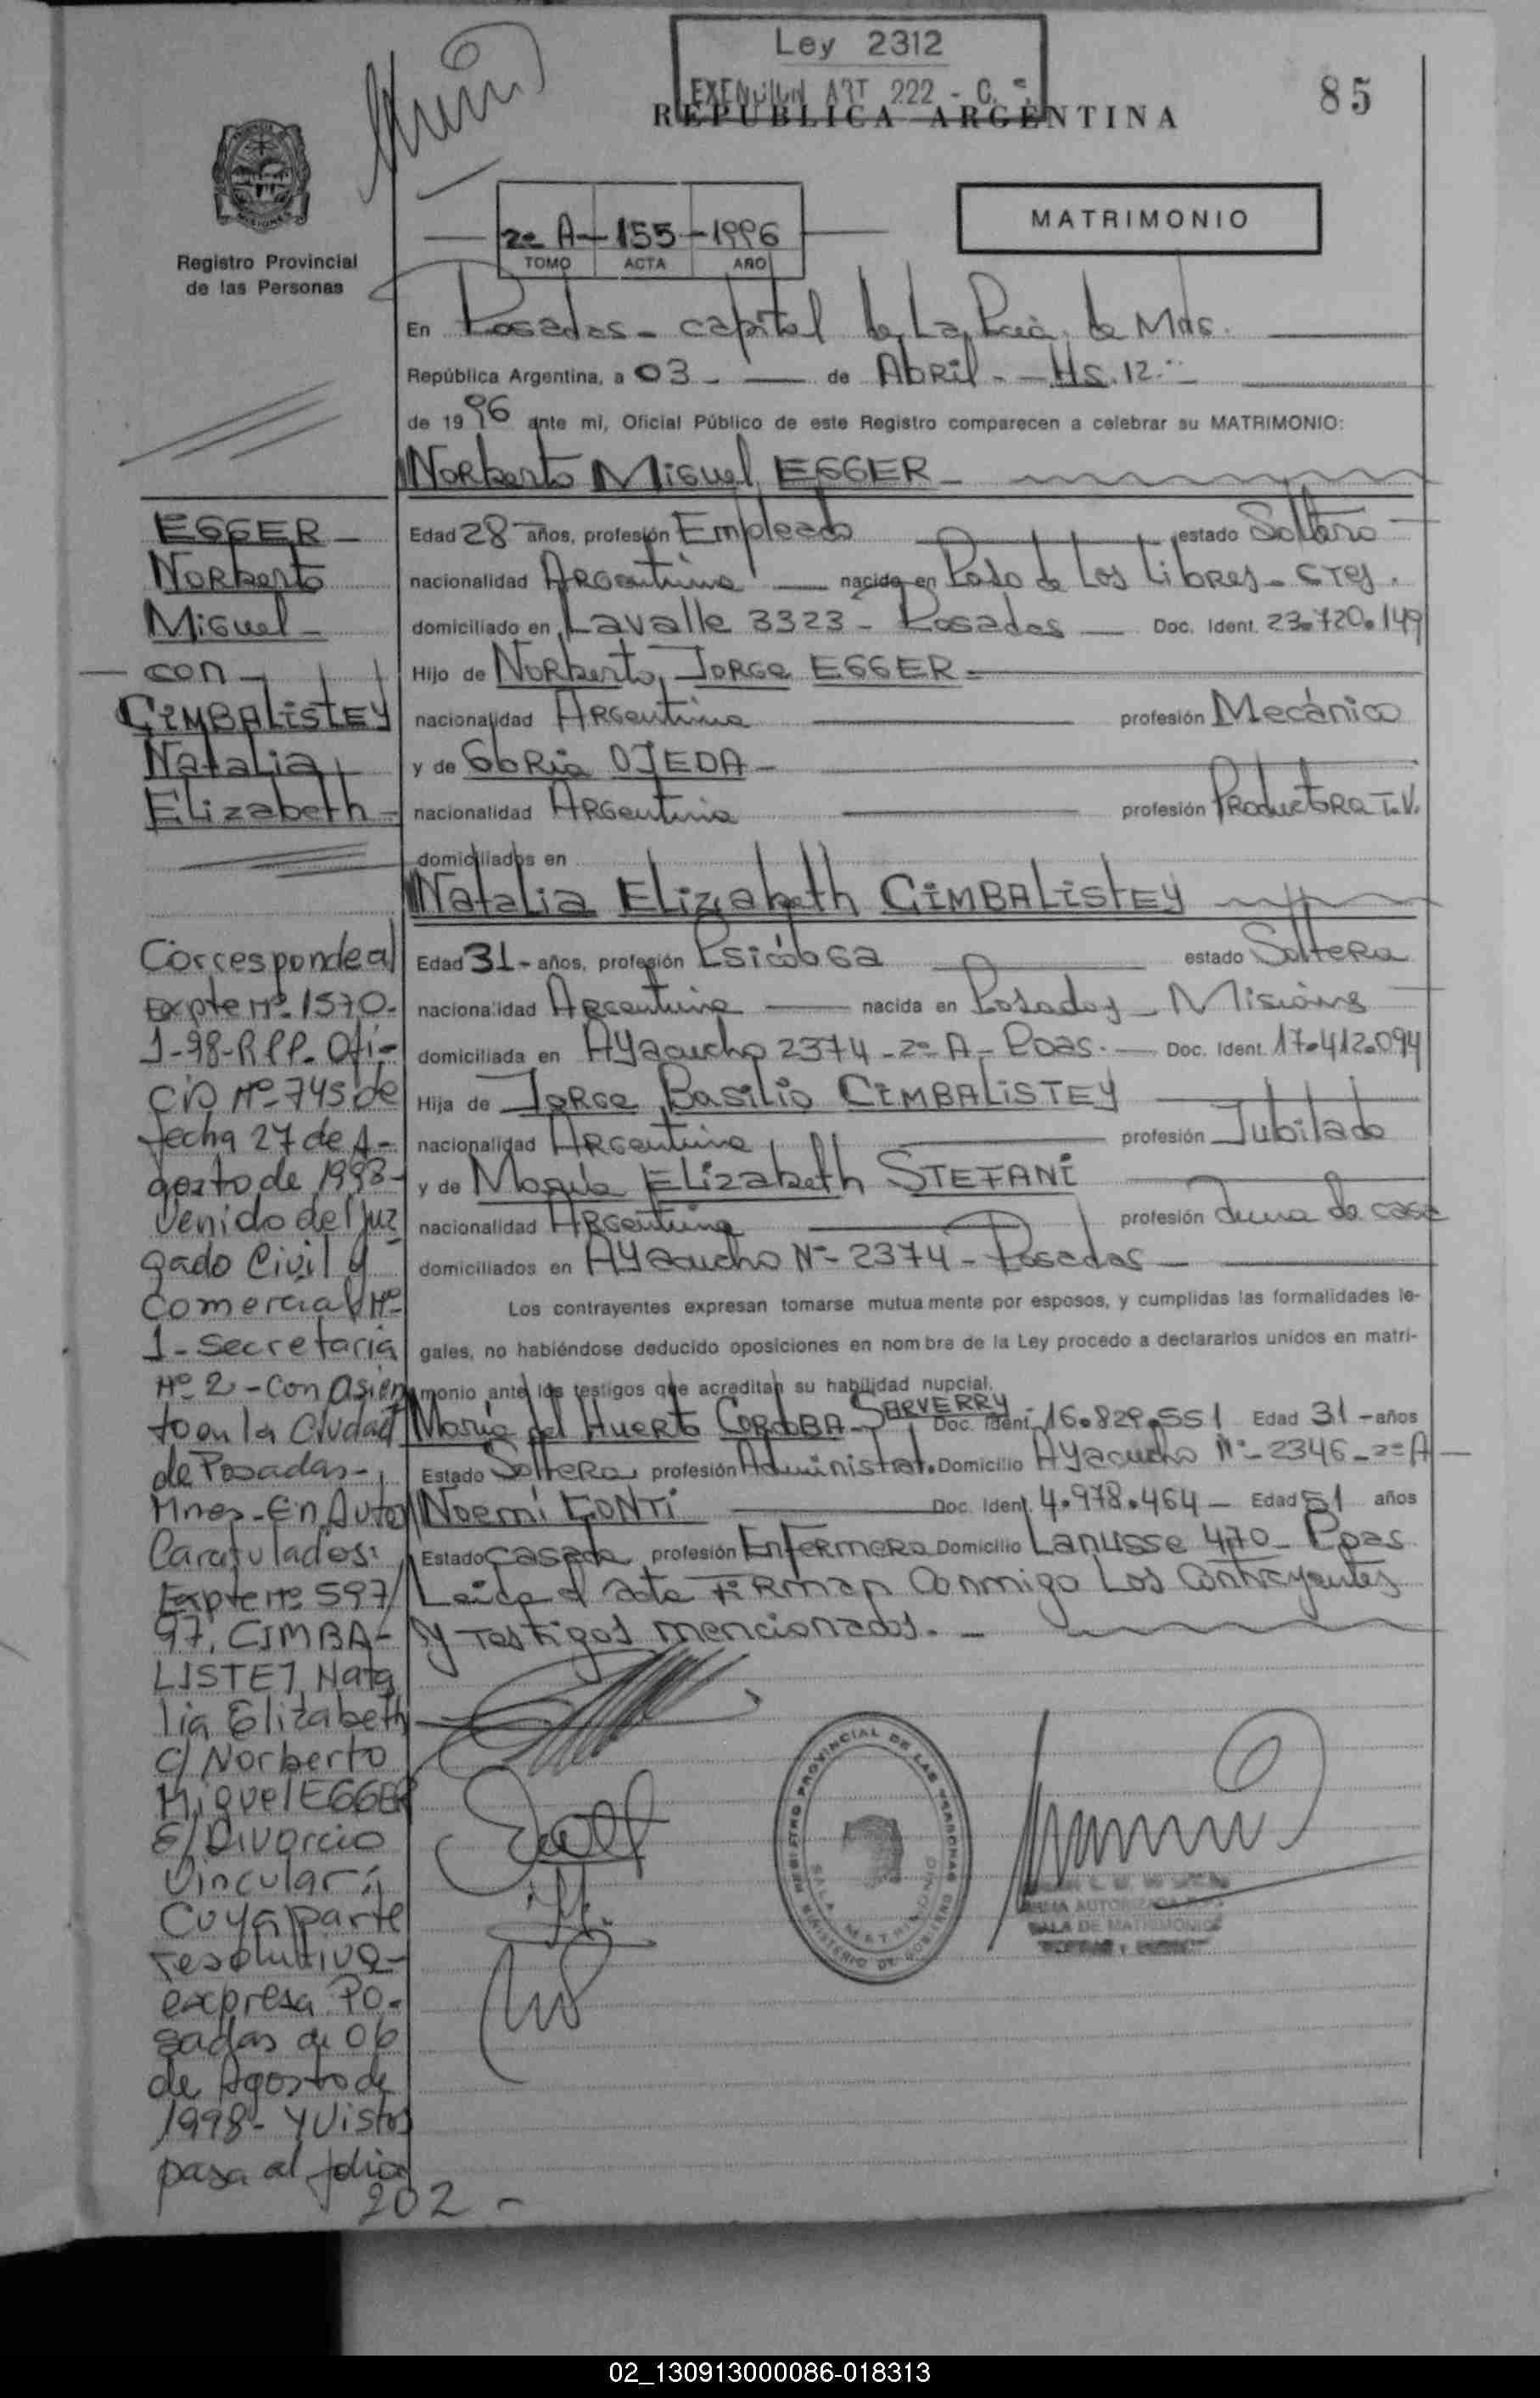 Ley 2312
EXENCION ART 222 - C.
REPUBLICA ARGENTINA
85
Registro Provincial
de las Personas
2º A - 155 - 1996
TOMO ACTA AÑO
MATRIMONIO
En Posadas - capital de La Pcia. de Mnes.
República Argentina, a 03 - de Abril - Hs. 12.-
de 1996 ante mi, Oficial Público de este Registro comparecen a celebrar su MATRIMONIO:
Norberto Miguel EGGER -
Edad 28 - años, profesión Empleado estado Soltero
nacionalidad Argentina nacido en Paso de Los Libres - Ctes.
domiciliado en Lavalle 3323 - Posadas Doc. Ident. 23.720.149
Hijo de Norberto Jorge EGGER -
nacionalidad Argentina profesión Mecánico
y de Gloria OJEDA -
nacionalidad Argentina profesión Productora T.V.
domiciliados en
Natalia Elizabeth CIMBALISTEY
Edad 31 - años, profesión Psicóloga estado Soltera
nacionalidad Argentina nacida en Posadas - Misiones
domiciliada en Ayacucho 2374 - 2º A - Pdas. Doc. Ident. 17.412.094
Hija de Jorge Basilio CIMBALISTEY
nacionalidad Argentina profesión Jubilado
y de María Elizabeth STEFANI
nacionalidad Argentina profesión Ama de casa
domiciliados en Ayacucho Nº 2374 - Posadas
Los contrayentes expresan tomarse mutuamente por esposos, y cumplidas las formalidades le-
gales, no habiéndose deducido oposiciones en nombre de la Ley procedo a declararlos unidos en matri-
monio ante los testigos que acreditan su habilidad nupcial.
María del Huerto CORDOBA SARVERRY Doc. Ident. 16.829.551 Edad 31 - años
Estado Soltera profesión Administrat. Domicilio Ayacucho Nº 2346 - 2º A
Noemí CONTI Doc. Ident. 4.978.464 - Edad 51 años
Estado Casada profesión Enfermera Domicilio Lanusse 470 - Pdas
Leída el acta Firman conmigo Los Contrayentes
y Testigos mencionados. -
EGGER -
Norberto
Miguel -
con -
CIMBALISTEY
Natalia
Elizabeth -
Corresponde al
Expte Nº 1570-
1-98-RPP. Ofi-
cio Nº 745 de
fecha 27 de A-
gosto de 1998-
Venido del Juz
gado Civil y
Comercial Nº
1 - Secretaria
Nº 2 - Con Asien
to en la Ciudad
de Posadas -
Mnes. - En Autos
Caratulados:
Expte Nº 597/
97, CIMBA-
LISTEY Nata
lia Elizabeth
c/ Norberto
Miguel EGGER
S/ Divorcio
Vincular;
Cuya parte
resolutiva
expresa Po-
sadas a 06
de Agosto de
1998 - Y Vistos
pasa al folio
202 -
REGISTRO PROVINCIAL DE LAS PERSONAS
SALA MATRIMONIO
MINISTERIO DE GOBIERNO
SALA DE MATRIMONIOS
02_130913000086-018313